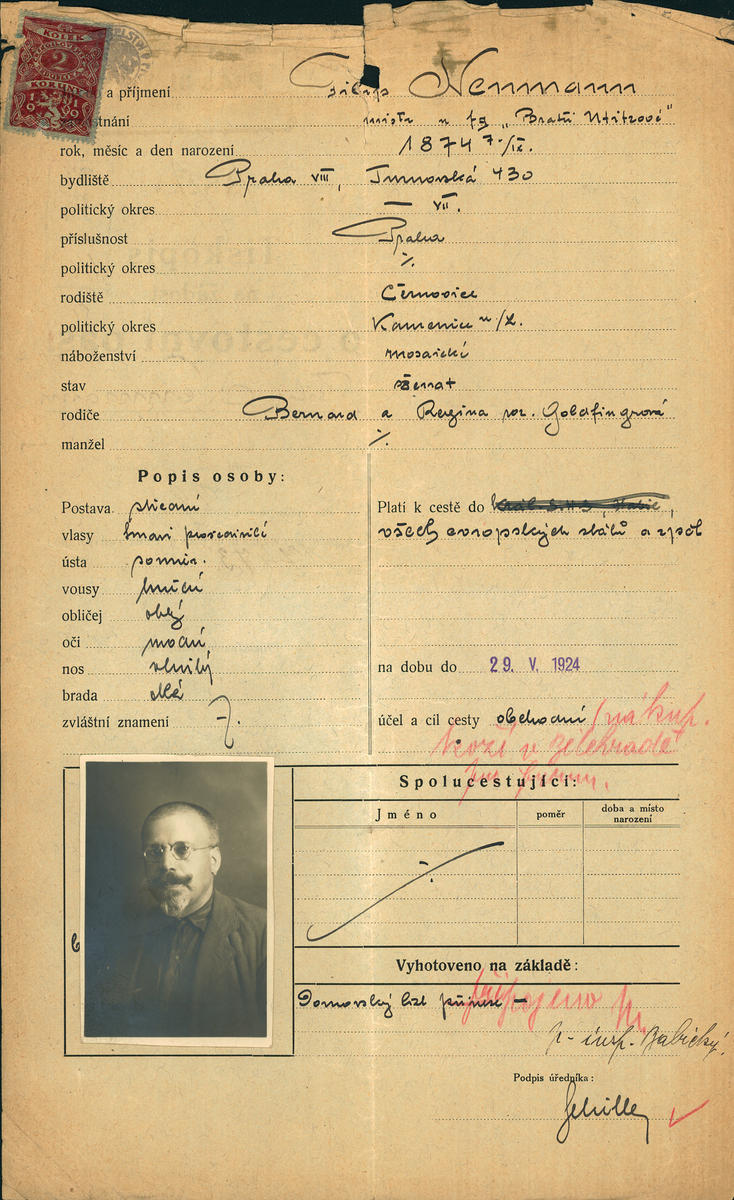 KOLEK
2
KORUNY
1919
a příjmení Filip Neumann
stnání mistr u fy „Bratři Utitzové"
rok, měsíc a den narození 1874 7./IX.
bydliště Praha VIII, Turnovská 430
politický okres — VII.
příslušnost Praha
politický okres ./.
rodiště Černovice
politický okres Kamenice n/L.
náboženství mosaické
stav ženat
rodiče Bernard a Regina roz. Goldfingrová
manžel ./.
Popis osoby:
Postava střední
vlasy tmavé prošedivělé
ústa souměr.
vousy
obličej oblý
oči modré
nos
brada
zvláštní znamení
Platí k cestě do Král. S.H.S,
všech evropských států a zpět
na dobu do 29. V. 1924
účel a cíl cesty obchodní / nákup.
koží v
Spolucestující:
Jméno poměr doba a místo narození
Vyhotoveno na základě:
Domovský list připojeno
p. insp. Babický.
Podpis úředníka: